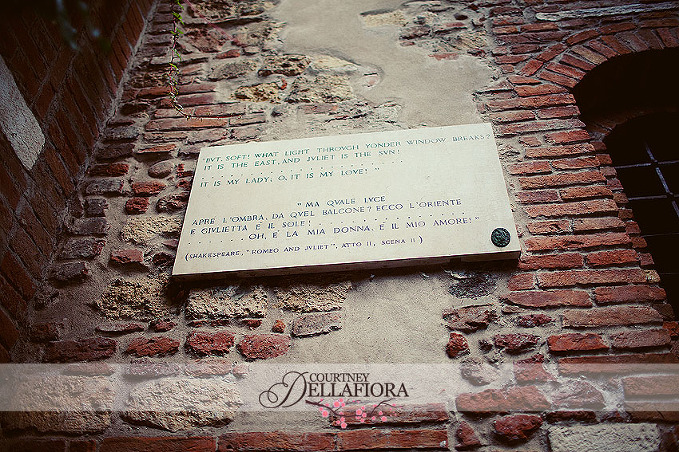 "BVT, SOFT! WHAT LIGHT THROVGH YONDER WINDOW BREAKS?
IT IS THE EAST, AND JVLIET IS THE SVN! . . . . . . . . . .
. . . . . . . . . . . . . . . . . . . .
IT IS MY LADY; O, IT IS MY LOVE! "
" MA QVALE LVCE
APRE L'OMBRA, DA QVEL BALCONE? ECCO L'ORIENTE
E GIVLIETTA E IL SOLE! . . . . . . . . . . . . . . .
. . . . . . . OH, E' LA MIA DONNA, E IL MIO AMORE!"
(SHAKESPEARE, "ROMEO AND JVLIET", ATTO II, SCENA II)
COURTNEY
DELLAFIORA